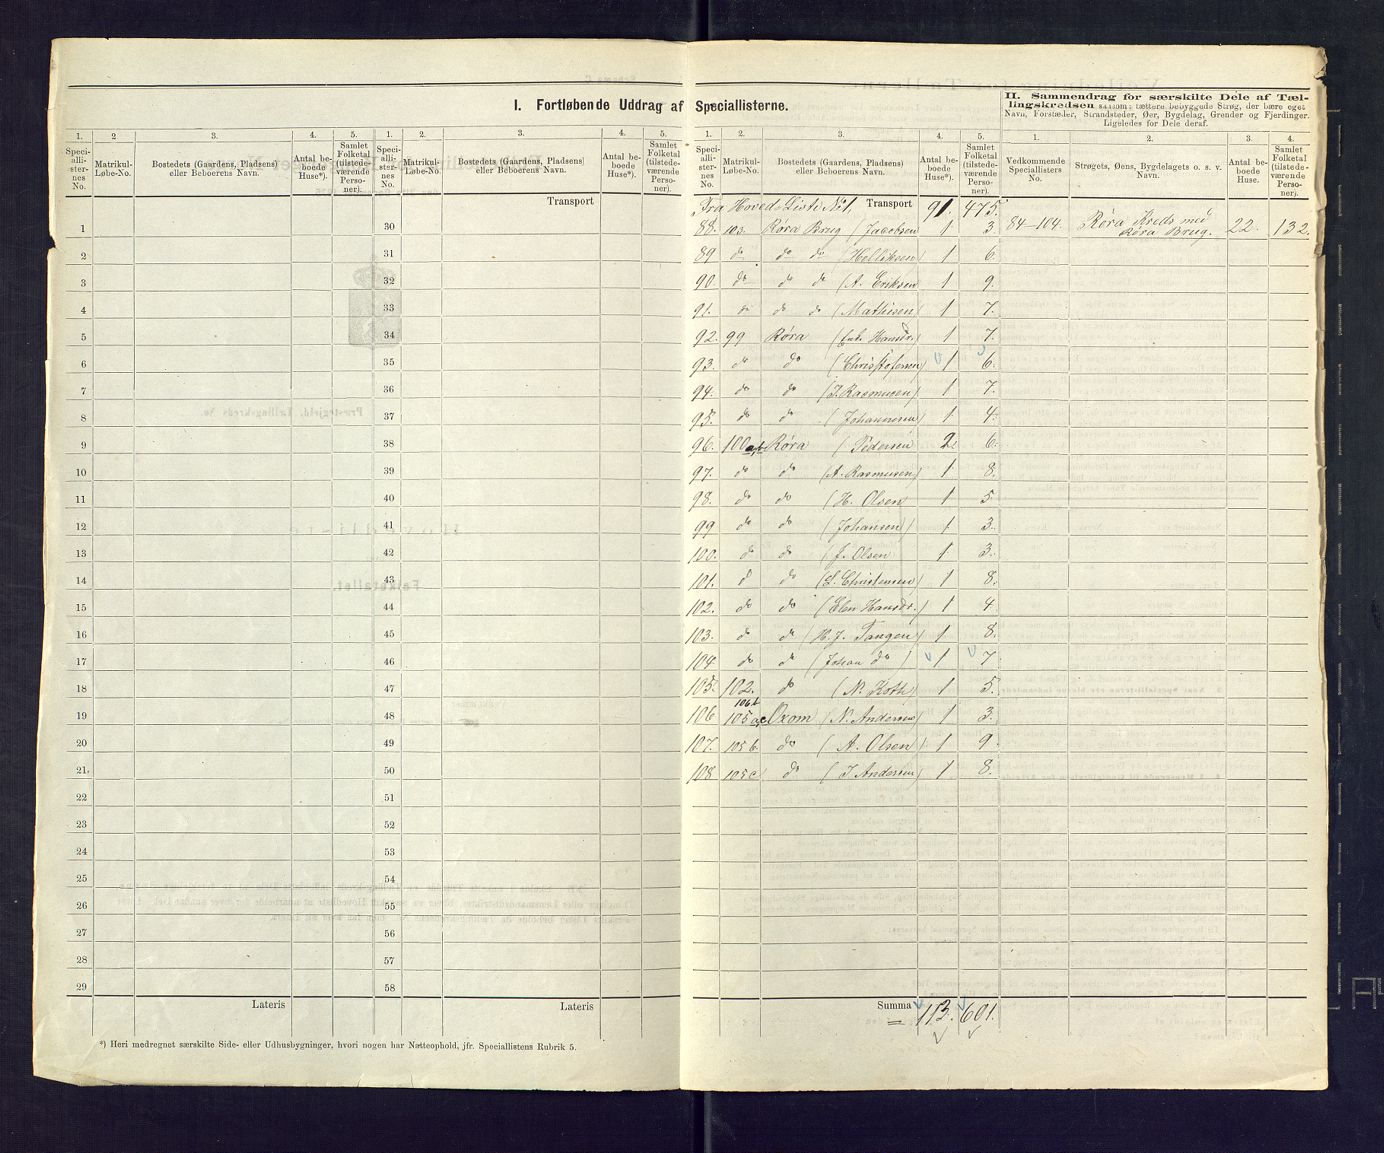 I. Fortløbende Uddrag af Speciallisterne.
II. Sammendrag for særskilte Dele af Tæl-
lingskredsen saasom: tættere bebyggede Strøg, der bære eget
Navn, Forstæder, Strandsteder, Øer, Bygdelag, Grender og Fjerdinger.
Ligeledes for Dele deraf.
1. 2 3. 4. 5. 1. 2. 3. 4. 5. 1. 2. 3. 4. 5. 1. 2. 3. 4.
Speci-
alli-
ster-
nes
No.
Matrikul-
Løbe-No.
Bostedets (Gaardens, Pladsens)
eller Beboerens Navn.
Antal be-
boede
Huse*).
Samlet
Folketal
(tilstede-
værende
Perso-
ner).
Speci-
alli-
ster-
nes
No.
Matrikul-
Løbe-No.
Bostedets (Gaardens, Pladsens)
eller Beboerens Navn.
Antal be-
boede
Huse*).
Samlet
Folketal
(tilstede-
værende
Perso-
ner).
Speci-
alli-
ster-
nes
No.
Matrikul-
Løbe-No.
Bostedets (Gaardens, Pladsens)
eller Beboerens Navn.
Antal be-
boede
Huse*).
Samlet
Folketal
(tilstede-
værende
Perso-
ner).
Vedkommende
Speciallisters
No.
Strøgets, Øens, Bygdelagets o. s. v.
Navn.
Antal
beboede
Huse.
Samlet
Folketal
(tilstede-
værende
Perso-
ner).
Transport
Fra Hoved-Liste No 1, Transport 91. 475.
1 30 88. 103 Røra Brug (Jacobsen 1 3. 84-104. Røra Kreds med
Røra Brug. 22. 132.
2 31 89 do do do (Helliksen) 1 6.
3 32 90. do do do (A. Eriksen 1 9.
4 33 91. do do do (Mathisen) 1 7.
5 34 92. 99 Røra (Enke Hansdr.) 1 7.
6 35 93. do do (Christofersen) 1 6.
7 36 94. do do (J. Rasmusen) 1 7.
8 37 95. do do (Johannesen) 1 4.
9 38 96. 100 a,b Røra (Pedersen 2. 6.
10 39 97. do do (A. Rasmusen) 1 8.
11 40 98. do do (H. Olsen) 1 5.
12 41 99 do do (Johansen) 1 3.
13 42 100. do do (J. Olsen 1 3.
14 43 101. do do (L. Christensen) 1 8.
15 44 102. do do (Elen Hansdr.) 1 4
16 45 103. do do (H. J. Tangen) 1 8.
17 46 104 do do (Johan do) 1 7
18 47 105. 102. do (N. Koth) 1 5.
106 b
19 48 106 105 a,c Oxom (N. Andersen) 1 3.
20 49 107. 105 b. do (A. Olsen) 1 9.
21. 50 108 105 c do (J. Andersen) 1 8.
22 51
23 52
24 53
25 54
26 55
27 56
28 57
29 58
Lateris Lateris Summa 113. 601.
*) Heri medregnet særskilte Side- eller Udhusbygninger, hvori nogen har Natteophold, jfr. Speciallistens Rubrik 5.